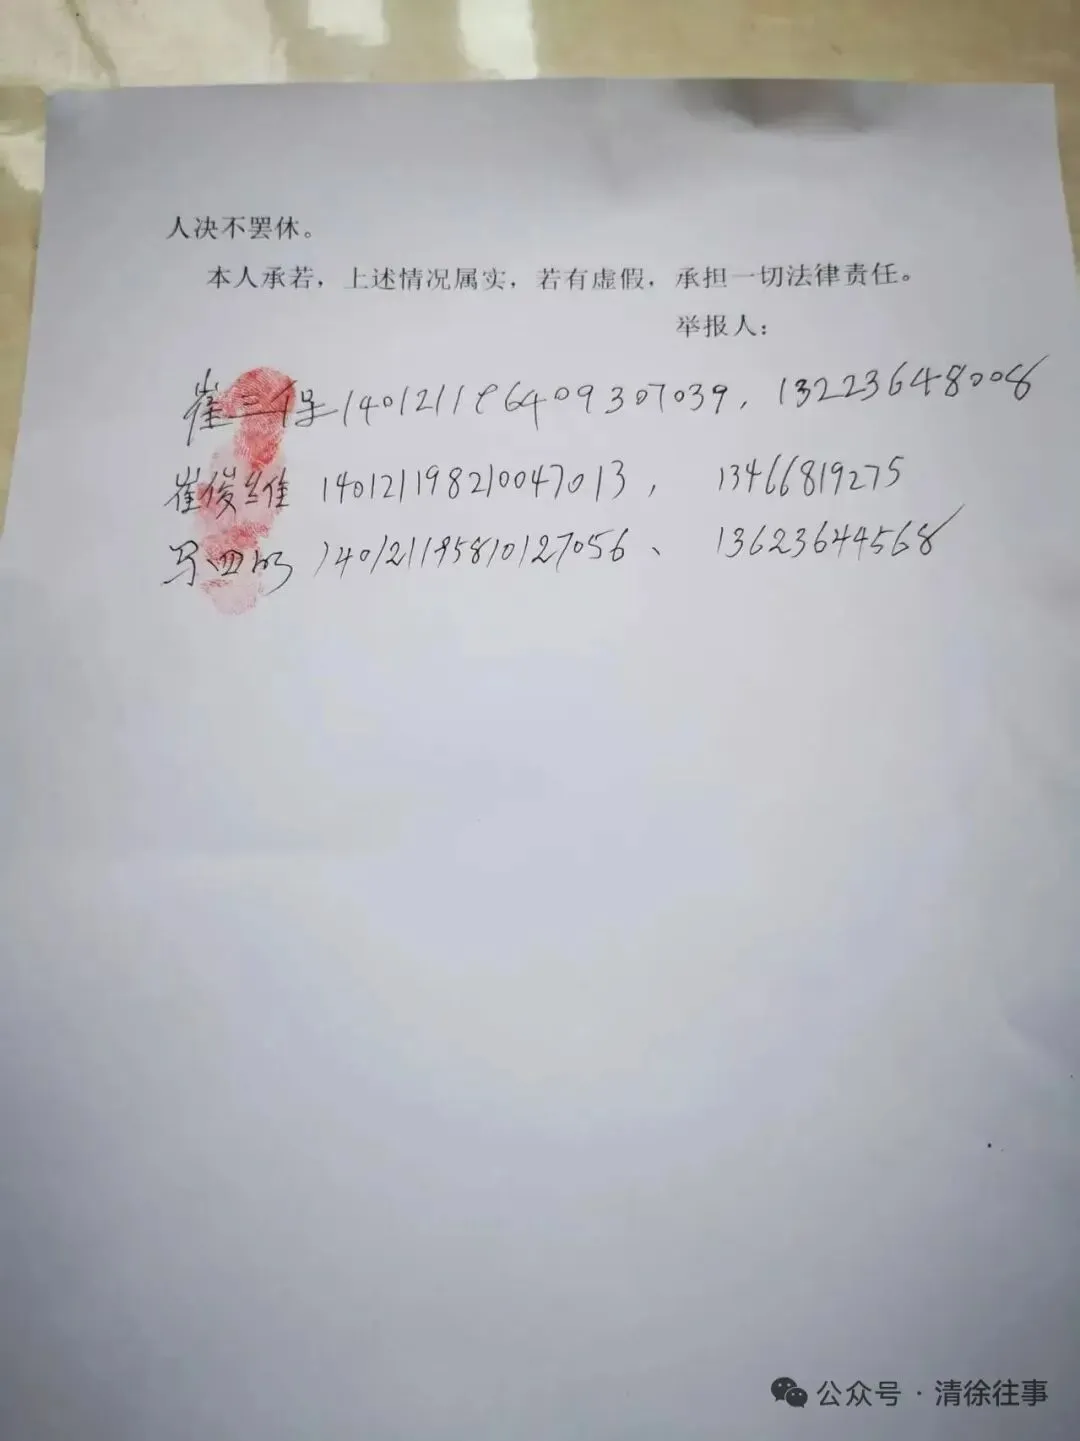 人决不罢休。
本人承若，上述情况属实，若有虚假，承担一切法律责任。
举报人：
崔三保 140121196409307039，13223648008
崔俊维 140121198210047013，13466819275
四 140121195810127056、13623644568
公众号·清徐往事